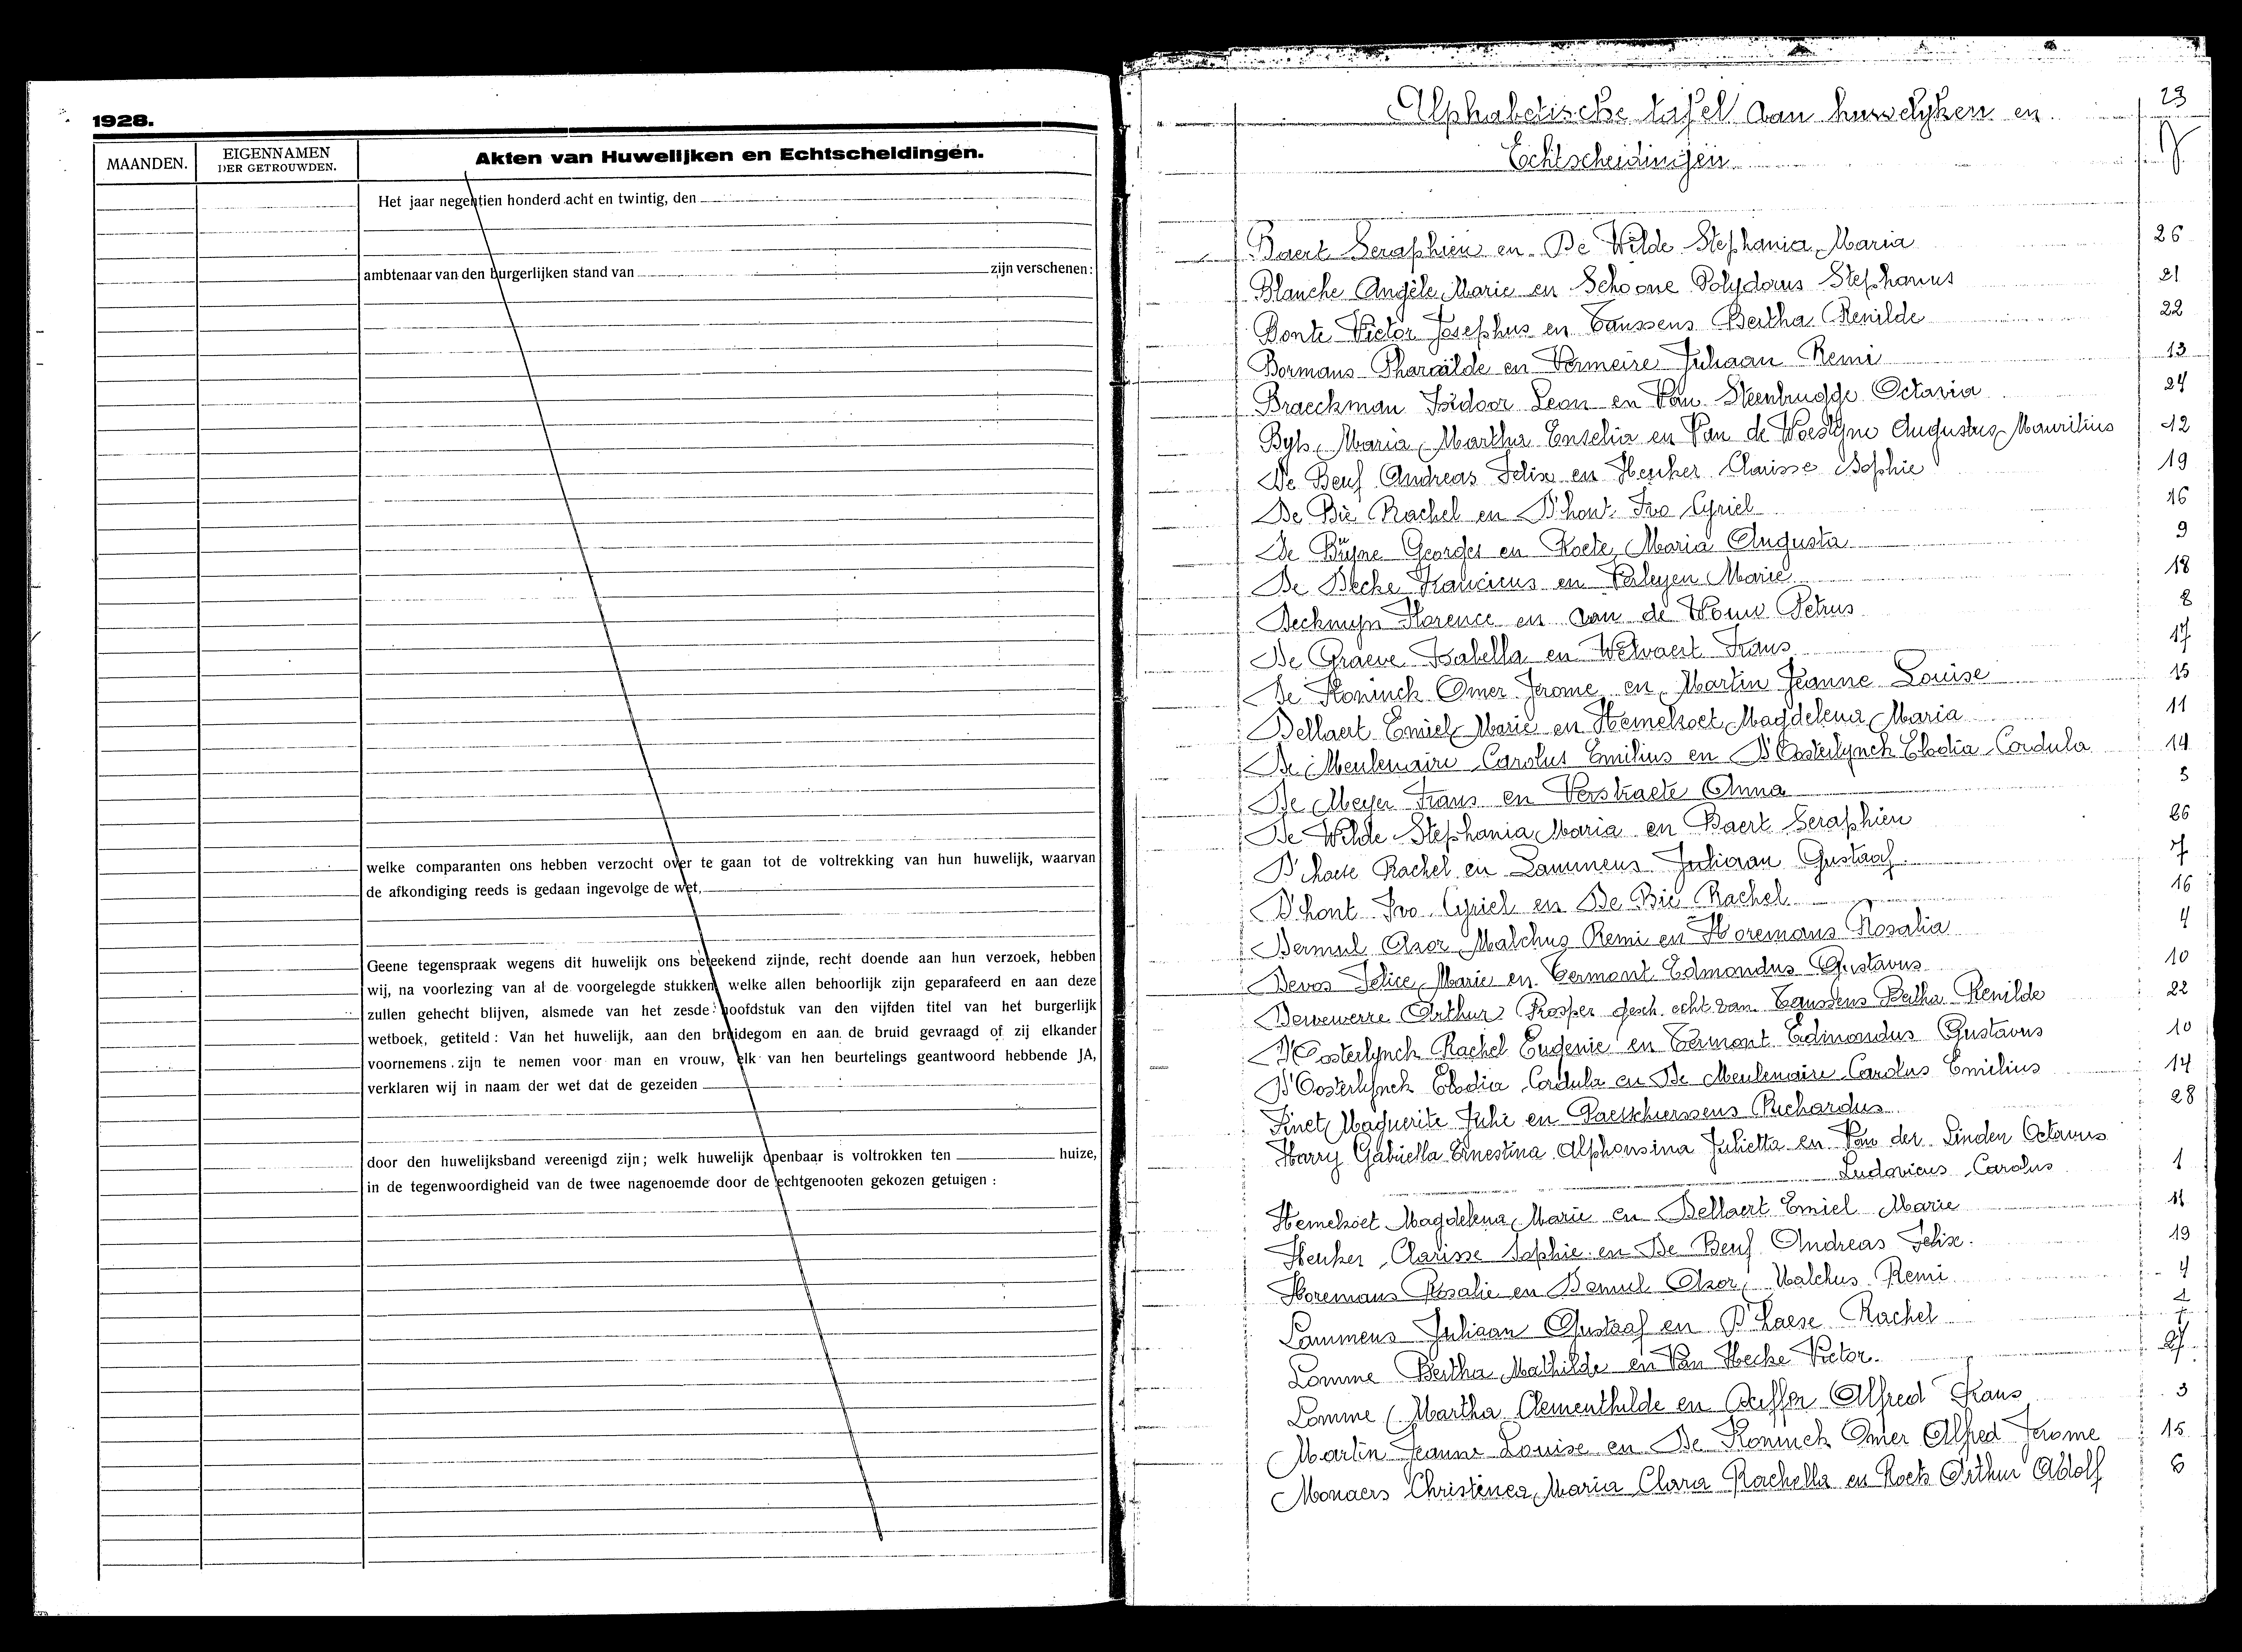 1928.
MAANDEN.
EIGENNAMEN
DER GETROUWDEN.
Akten van Huwelijken en Echtscheidingen.
Het jaar negentien honderd acht en twintig, den
ambtenaar van den burgerlijken stand van zijn verschenen:
welke comparanten ons hebben verzocht over te gaan tot de voltrekking van hun huwelijk, waarvan
de afkondiging reeds is gedaan ingevolge de wet,
Geene tegenspraak wegens dit huwelijk ons beteekend zijnde, recht doende aan hun verzoek, hebben
wij, na voorlezing van al de voorgelegde stukken, welke allen behoorlijk zijn geparafeerd en aan deze
zullen gehecht blijven, alsmede van het zesde hoofdstuk van den vijfden titel van het burgerlijk
wetboek, getiteld: Van het huwelijk, aan den bruidegom en aan de bruid gevraagd of zij elkander
voornemens zijn te nemen voor man en vrouw, elk van hen beurtelings geantwoord hebbende JA,
verklaren wij in naam der wet dat de gezeiden
door den huwelijksband vereenigd zijn; welk huwelijk openbaar is voltrokken ten huize,
in de tegenwoordigheid van de twee nagenoemde door de echtgenooten gekozen getuigen :
Alphabetische tafel van huwelyken en 29
Echtscheidingen
Baert Seraphien en De Wilde Stephania Maria 26
Blanche Angèle Marie en Schoone Polydorus Stephanus 21
Bonte Victor Josephus en Caussens Bertha Renilde 22
Bormans Pharaïlde en Vermeire Juliaan Remi 13
Braeckman Isidoor Leon en Van Steenbrugge Octavia 24
Byls Maria Martha en Van de Woestyne Augustus Maurilius 12
De Beuf Andreas Felix en Heuker Clarisse Sophie 19
De Bie Rachel en D'hont Ivo Cyriel 16
De Bûyne Georges en Maria Augusta 9
De Decke en Verleyen Marie 18
Deckmyn Florence en van de Wouw Petrus 8
De Graeve Isabella en Welvaert Frans 17
De Koninck Omer Jerome en Martin Jeanne Louise 15
Dellaert Emiel Marie en Hemelsoet Magdelena Maria 11
De Meulenaire Carolus Emilius en D'Oosterlynck Elodia Cordula 14
De Meyer Frans en Verstraete Anna 5
De Wilde Stephania Maria en Baert Seraphien 26
D'haese Rachel en Lammens Juliaan Gustaaf 7
D'hont Ivo Cyriel en De Bie Rachel 16
Dermul Azor Malchus Remi en Horemans Rosalia 4
Devos Felice Marie en Cermont Edmondus Gustavus 10
Dewewerre Arthur Prosper gesch. echt. van Caussens Bertha Renilde 22
D'Oosterlynck Rachel Eugenie en Cermont Edmondus Gustavus 10
D'Oosterlynck Elodia Cordula en De Meulenaire Carolus Emilius 14
Finet Maguerite Julie en Richardus 28
Harry Gabriella Ernestina Alphonsina Julietta en Van der Linden Octavus
Ludovicus Carolus 1
Hemelsoet Magdelena Marie en Dellaert Emiel Marie 11
Heuker Clarisse Sophie en De Beuf Andreas Felix. 19
Horemans Rosalie en Demul Azor Malchus Remi 4
Lammens Juliaan Gustaaf en D'haese Rachel 7
Lomme Bertha Mathilde en Van Hecke Victor. 27
Lomme Martha Clementhilde en Alfred Frans 3
Martin Jeanne Louise en De Koninck Omer Alfred Jerome 15
Monaers Christinea Maria Clara Rachella en Arthur Adolf 6